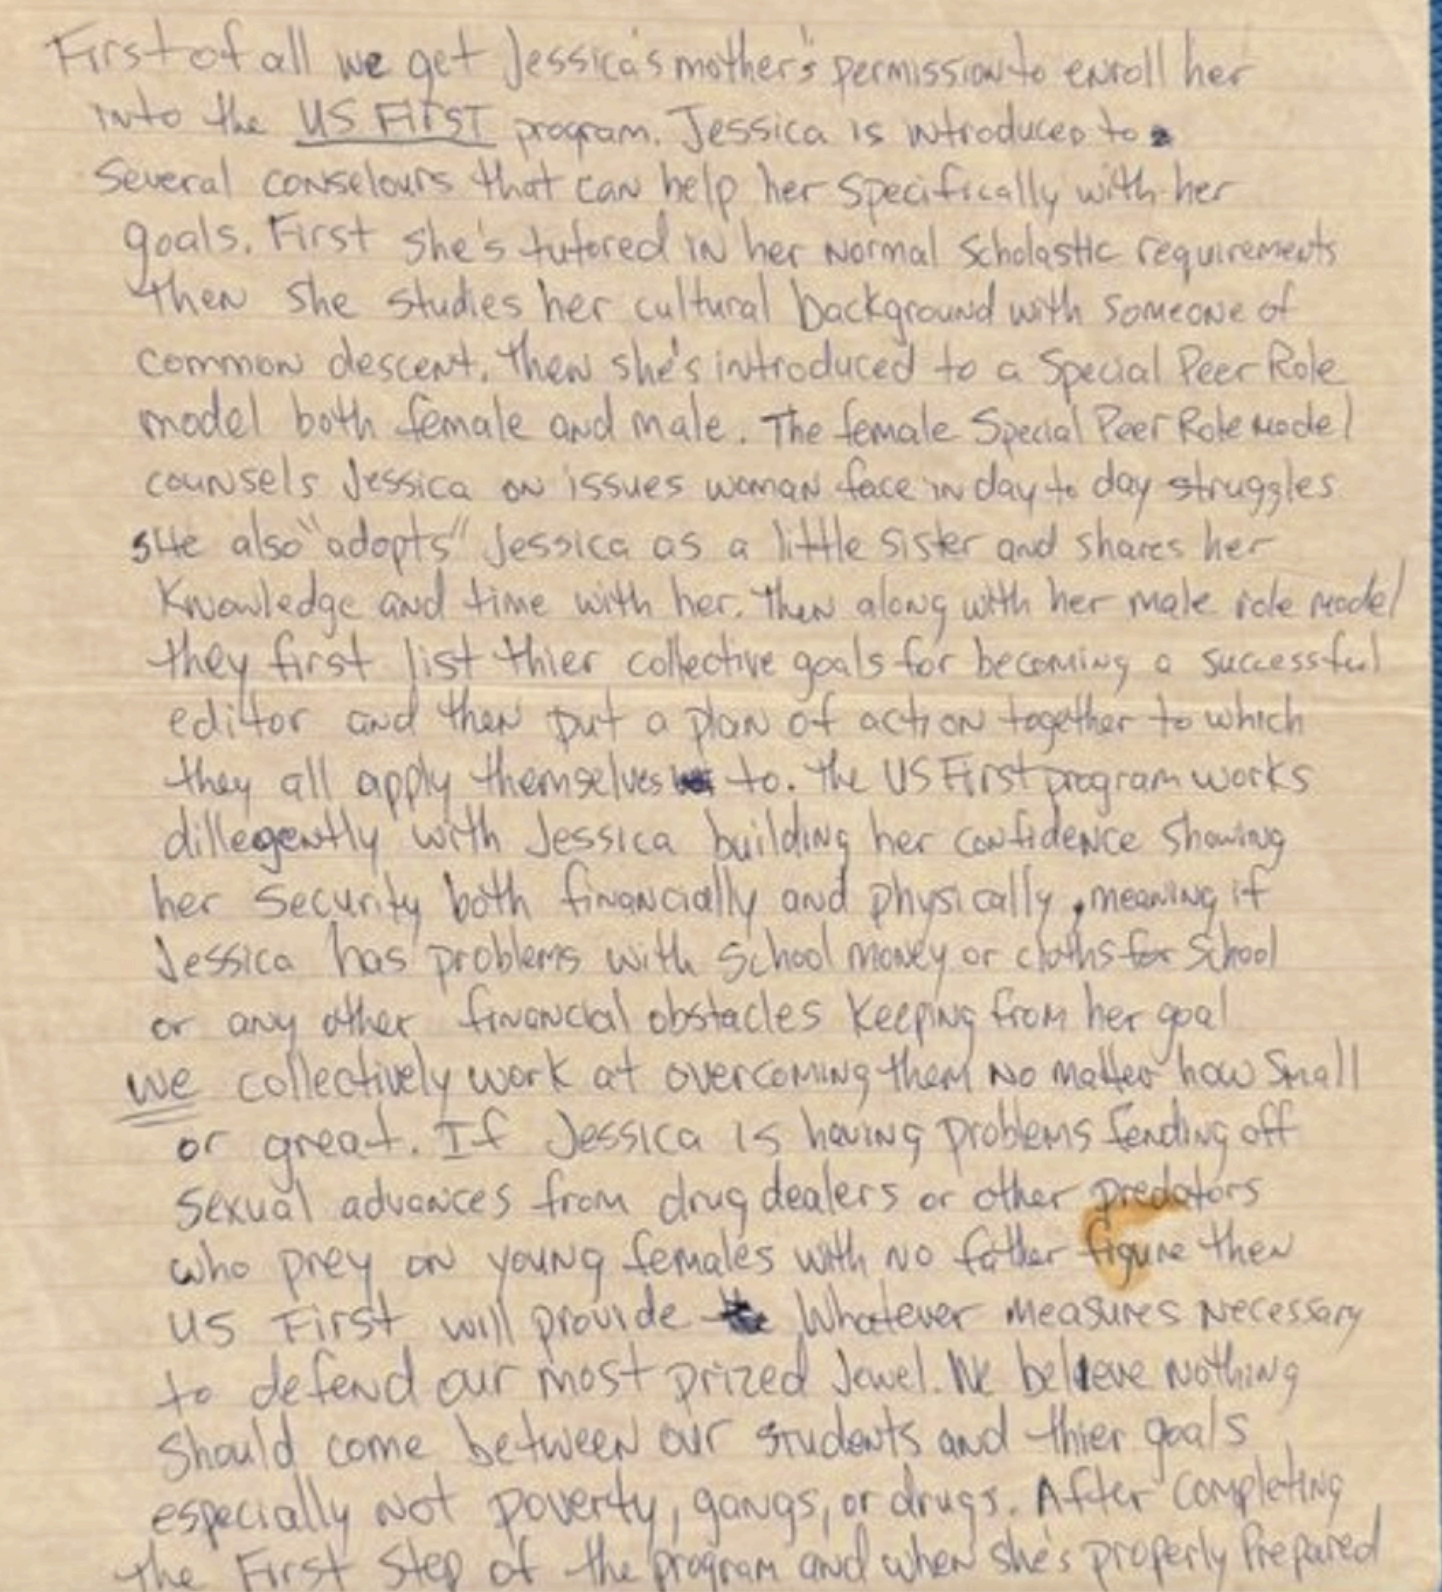 First of all we get Jessica's mother's permission to enroll her
into the US FIrST program. Jessica is introduced to
several conselours that can help her specifically with her
goals. First she's tutored in her normal Scholastic requirements
then she studies her cultural background with someone of
common descent. Then she's introduced to a Special Peer Role
model both female and male. The female Special Peer Role Model
counsels Jessica on issues woman face in day to day struggles
she also "adopts" Jessica as a little sister and shares her
Knowledge and time with her. Then along with her male role model
they first list thier collective goals for becoming a successful
editor and then put a plan of action together to which
they all apply themselves to. The US First program works
dillegently with Jessica building her confidence showing
her Security both financially and physically, meaning if
Jessica has problems with School money or cloths for School
or any other financial obstacles Keeping from her goal
we collectively work at overcoming them no matter how small
or great. If Jessica is having problems fending off
sexual advances from drug dealers or other predators
who prey on young females with no father figure then
US First will provide Whatever measures necessary
to defend our most prized Jewel. We believe nothing
should come between our students and thier goals
especially not poverty, gangs, or drugs. After completing
the First Step of the program and when she's properly Prepared